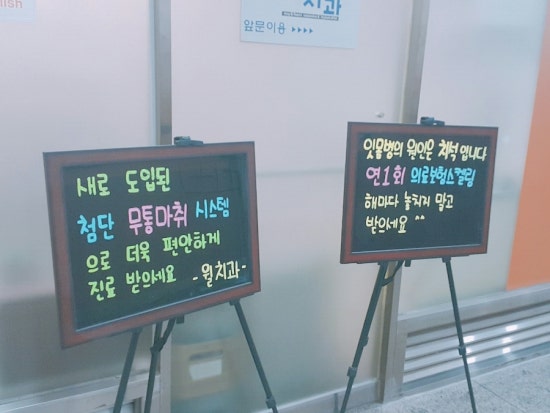 치과
앞문이용 ▸▸▸▸
새로 도입된
첨단 무통마취 시스템
으로 더욱 편안하게
진료 받으세요 -월치과-
잇몸병의 원인은 치석 입니다
연1회 의료보험스켈링
해마다 놓치지 말고
받으세요 ^^